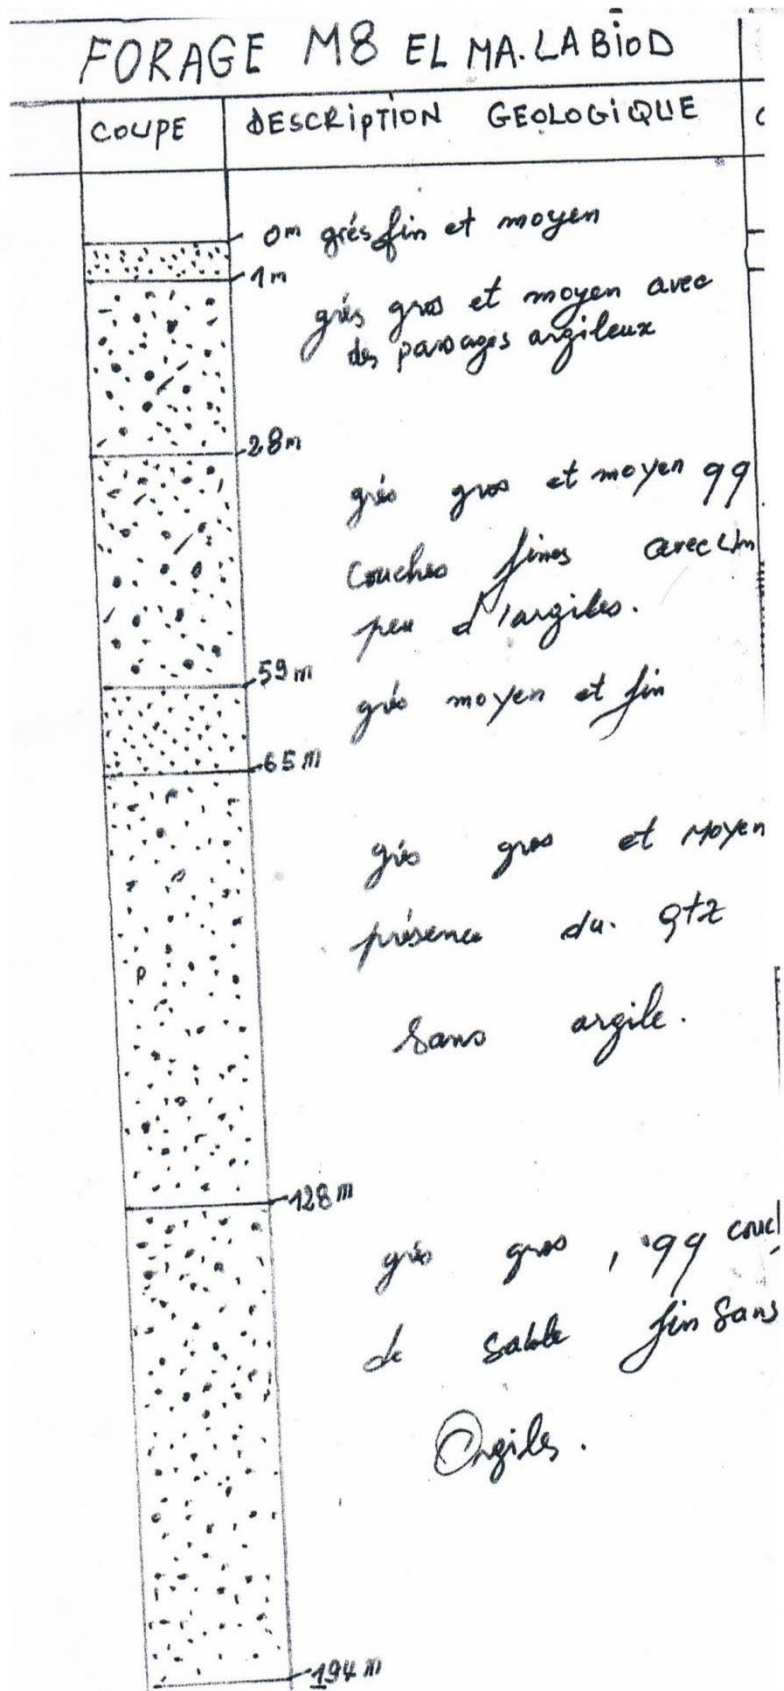 FORAGE M8 EL MA.LABIOD
COUPE DESCRIPTION GEOLOGIQUE
0m grés fin et moyen
1m
grés gros et moyen avec
des passages argileux
28m
grés gros et moyen qq
couches fines avec Un
peu d'argiles.
59m
grés moyen et fin
65m
grés gros et Moyen
présence du. qtz
Sans argile.
128m
grés gros, qq couc
de Sable fin Sans
Argiles.
194m